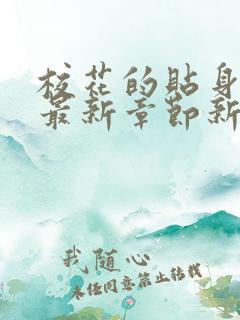 校花的贴身
最新章节新
我随心
未经同意禁止转载